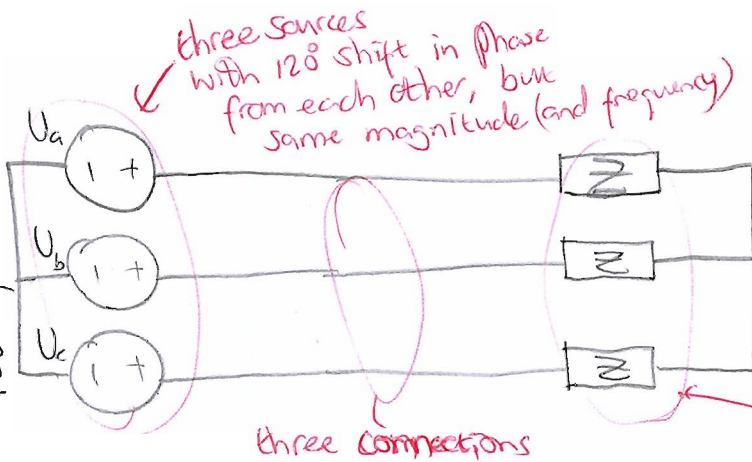 three sources
with 120° shift in phase
from each other, but
same magnitude (and frequency)
Ua
- +
Z
Ub
- +
Z
Uc
- +
Z
three connections